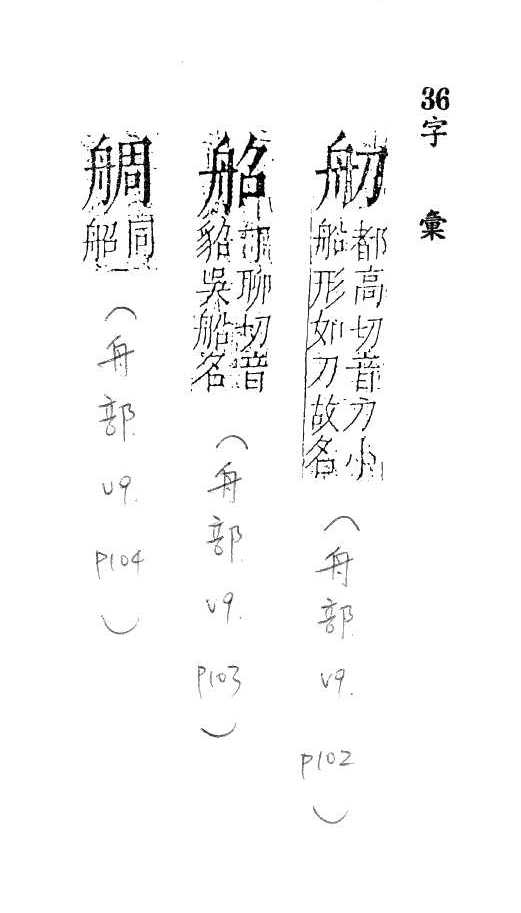 36字彙
舠都高切音刀小
船形如刀故名
（舟部 V9. P102）
𦨣聊切音
貂吳船名
（舟部 V9. P103）
䑼同
𦨣
（舟部 V9. P104）